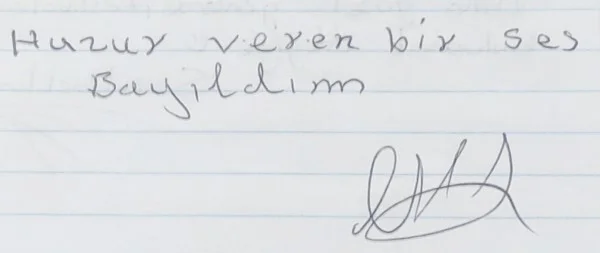 Huzur veren bir ses
Bayıldım